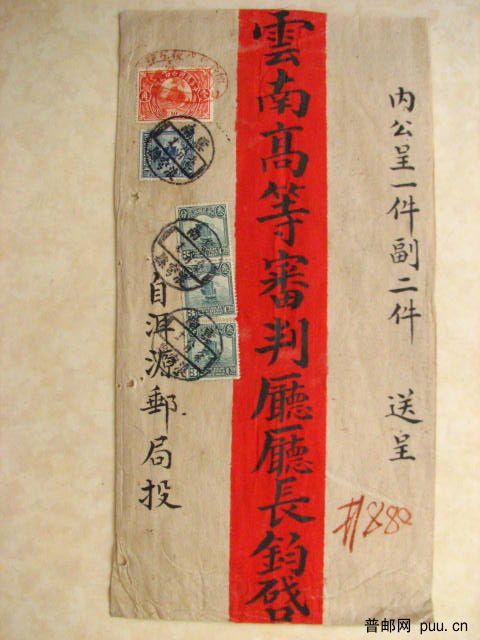 內公呈一件副二件 送呈
雲南高等審判廳廳長鈞啓
自洱源郵局投
#880
普邮网 puu.cn